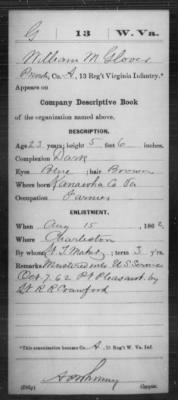 G | 13 | W. Va.
William M. Glover
Co. A, 13 Reg't Virginia Infantry.*
Appears on
Company Descriptive Book
of the organization named above.
DESCRIPTION.
Age 23 years; height 5 feet 6 inches.
Complexion Dark
Eyes Blue; hair Brown
Where born Kanawha Co Va
Occupation Farmer
ENLISTMENT.
When Aug 15, 1862.
Where Charleston
By whom; term 3 y'rs.
Remarks Mustered into U S Service
Oct 7. 62 Pt Pleasant by
Lt R R Crawford
*This organization became Co. A, 13 Reg't W. Va. Inf.
Copyist.